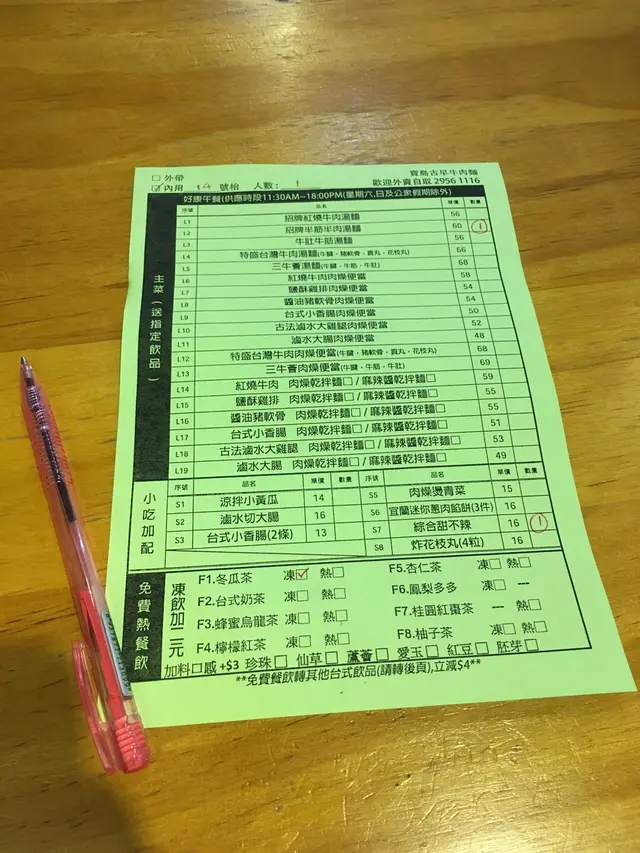 寶島古早牛肉麵
□ 外帶
☑ 內用 14 號枱 人數: 1 歡迎外賣自取 2956 1116
好康午餐(供應時段11:30AM~18:00PM(星期六,日及公眾假期除外)
主菜(送指定飲品)
序號 品名 單價 數量
L1 招牌紅燒牛肉湯麵 56
L2 招牌半筋半肉湯麵 60 1
L3 牛肚牛筋湯麵 56
L4 特盛台灣牛肉湯麵(牛腱，豬軟骨，貢丸，花枝丸) 66
L5 三牛薈湯麵(牛腱，牛筋，牛肚) 68
L6 紅燒牛肉肉燥便當 58
L7 鹽酥雞排肉燥便當 54
L8 醬油豬軟骨肉燥便當 54
L9 台式小香腸肉燥便當 50
L10 古法滷水大雞腿肉燥便當 52
L11 滷水大腸肉燥便當 48
L12 特盛台灣牛肉肉燥便當(牛腱，豬軟骨，貢丸，花枝丸) 68
L13 三牛薈肉燥便當(牛腱，牛筋，牛肚) 69
L14 紅燒牛肉 肉燥乾拌麵□ / 麻辣醬乾拌麵□ 59
L15 鹽酥雞排 肉燥乾拌麵□ / 麻辣醬乾拌麵□ 55
L16 醬油豬軟骨 肉燥乾拌麵□ / 麻辣醬乾拌麵□ 55
L17 台式小香腸 肉燥乾拌麵□ / 麻辣醬乾拌麵□ 51
L18 古法滷水大雞腿 肉燥乾拌麵□ / 麻辣醬乾拌麵□ 53
L19 滷水大腸 肉燥乾拌麵□ / 麻辣醬乾拌麵□ 49
小吃加配
序號 品名 單價 數量 序號 品名 單價 數量
S1 涼拌小黃瓜 14 S5 肉燥燙青菜 15
S2 滷水切大腸 16 S6 宜蘭迷你蔥肉餡餅(3件) 16
S3 台式小香腸(2條) 13 S7 綜合甜不辣 16 1
S8 炸花枝丸(4粒) 16
免費熱餐飲
凍飲加三元
F1.冬瓜茶 凍☑ 熱□ F5.杏仁茶 凍□ 熱□
F2.台式奶茶 凍□ 熱□ F6.鳳梨多多 凍□ ---
F3.蜂蜜烏龍茶 凍□ 熱□ F7.桂圓紅棗茶 --- 熱□
F4.檸檬紅茶 凍□ 熱□ F8.柚子茶 凍□ 熱□
加料口感 +$3 珍珠□ 仙草□ 蘆薈□ 愛玉□ 紅豆□ 胚芽□
**免費餐飲轉其他台式飲品(請轉後頁),立減$4**